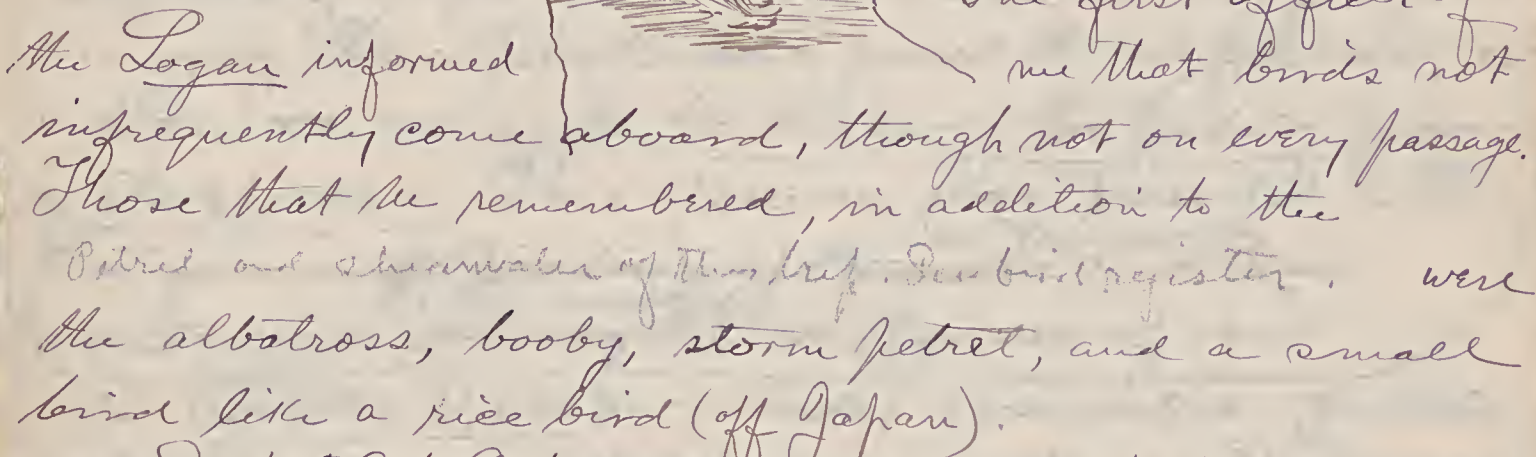 The first officer of
the Logan informed me that birds not
infrequently come aboard, though not on every passage.
Those that he remembered, in addition to the
Petrel and shearwater of this trip. See bird register. were
the albatross, booby, storm petrel, and a small
bird like a rice bird (off Japan).